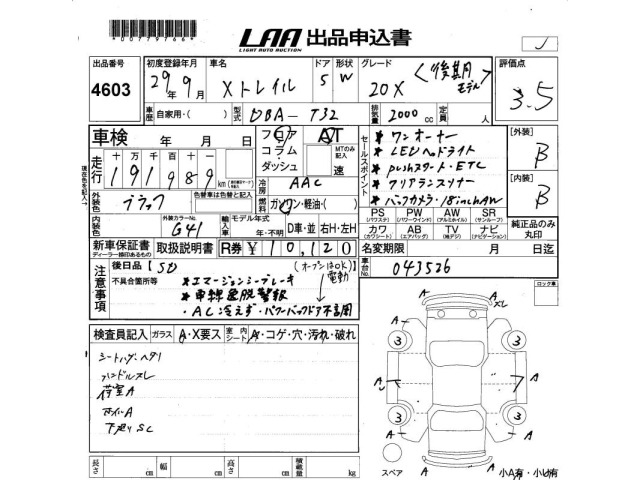 *00779766*
LAA 出品申込書
LIGHT AUTO AUCTION
J
出品番号 初度登録年月 車名 ドア 形状 グレード 評価点
4603 29年9月 Xトレイル 5 W 20X <後期モデル> 3.5
車歴 自家用・( ) 型式 DBA-T32 排気量 2000cc 定員 人
車検 年 月 日
フロア コラム・ダッシュ AT MTのみ記入 速
セールスポイント
*ワンオーナー
*LEDヘッドライト
*pushスタート・ETC
*クリアランスソナー
*バックカメラ・18inchAW
[外装] B
[内装] B
走行 十万 191989 km
現在色を記入
外装色 ブラック 色替車は色替と記入
冷房 AAC
燃料 ガソリン・軽油・( )
内装色 外装カラーNo. G41
輸入車 モデル年式 年・不明 D車・並 右H・左H
PS (パワステ) PW (パワーウインド) AW (アルミホイル) SR (サンルーフ)
カワ (カワシート) AB (エアバッグ) TV (地デジ) ナビ (ナビゲーション)
純正品のみ丸印
新車保証書 ディーラー捺印あるもの 取扱説明書 R券 ¥10,120
名変期限 月 日迄
車台No. 043526
注意事項
後日品 [SD
不具合箇所等
*エマージェンシーブレーキ
*車線逸脱警報
・AC冷えず・パワーバックドア不良用
(オープンはOK) 電動
ロック車
検査員記入 ガラス A・X要ス 室内シート A・コゲ・穴・汚れ・破れ
シートハゲ・ヘタリ
ハンドルスレ
荷室A
ホイルA
下廻りSC
A A スレ
3 3
A A A
3 3
A A
スペア
小A有・小U有
長さ cm 幅 cm 高さ cm 積載量 kg